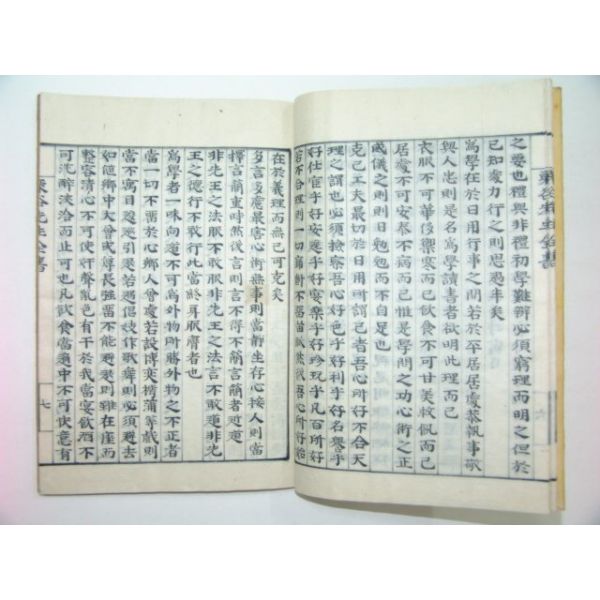 栗谷先生全書
六
之要也禮與非禮初學難辨必須窮理而明之但於
已知處力行之則思過半矣
爲學在於日用行事之間若於平居居處恭執事敬
與人忠則是名爲學讀書者欲明此理而已
衣服不可華侈禦寒而已飮食不可甘美救飢而已
居處不可安泰不病而已惟是學問之功心術之正
威儀之則則日勉勉而不自足也
克己工夫最切於日用所謂己者吾心所好不合天
理之謂也必須檢察吾心好色乎好利乎好名譽乎
好仕宦乎好安逸乎好宴樂乎好珍玩乎凡百所好
若不合理則一切痛斷不留苗脈然後吾心所好始
在於義理而無己可克矣
多言多慮最害心術無事則當靜坐存心接人則當
擇言簡重時然後言則言不得不簡言簡者近道
非先王之法服不敢服非先王之法言不敢道非先
王之德行不敢行此當終身服膺者也
爲學者一味向道不可爲外物所勝外物之不正者
當一切不留於心鄕人會處若設博奕樗蒲等戲則
當不寓目逡巡引退若遇倡妓作歌舞則必須避去
如値鄕中大會或尊長强留不能避退則雖在座而
整容淸心不可使奸聲亂色有干於我當宴飮酒不
可沈醉浹洽而止可也凡飮食當適中不可快意有
栗谷先生全書
七